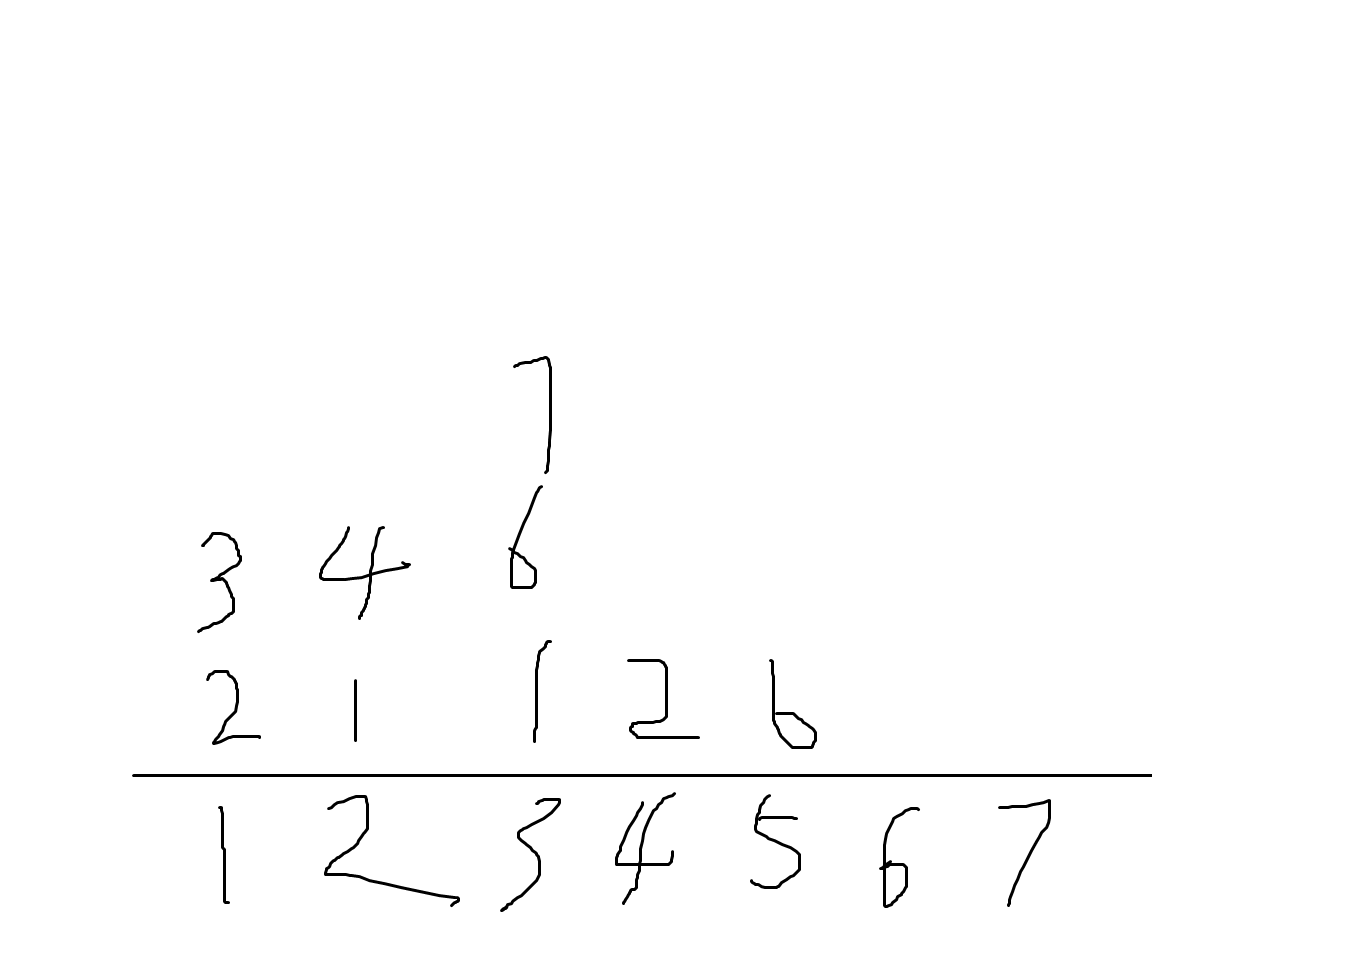 7
3 4 6
2 1 1 2 6
1 2 3 4 5 6 7